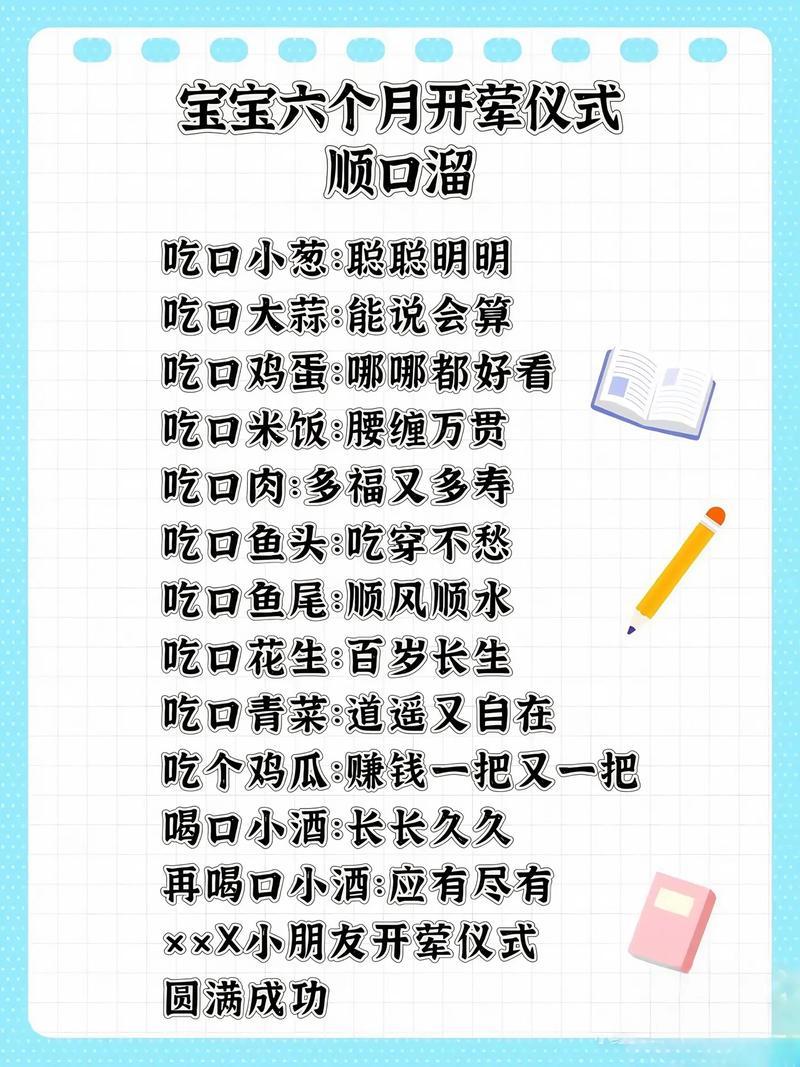 宝宝六个月开荤仪式
顺口溜
吃口小葱:聪聪明明
吃口大蒜:能说会算
吃口鸡蛋:哪哪都好看
吃口米饭:腰缠万贯
吃口肉:多福又多寿
吃口鱼头:吃穿不愁
吃口鱼尾:顺风顺水
吃口花生:百岁长生
吃口青菜:道遥又自在
吃个鸡瓜:赚钱一把又一把
喝口小酒:长长久久
再喝口小酒:应有尽有
××X小朋友开荤仪式
圆满成功